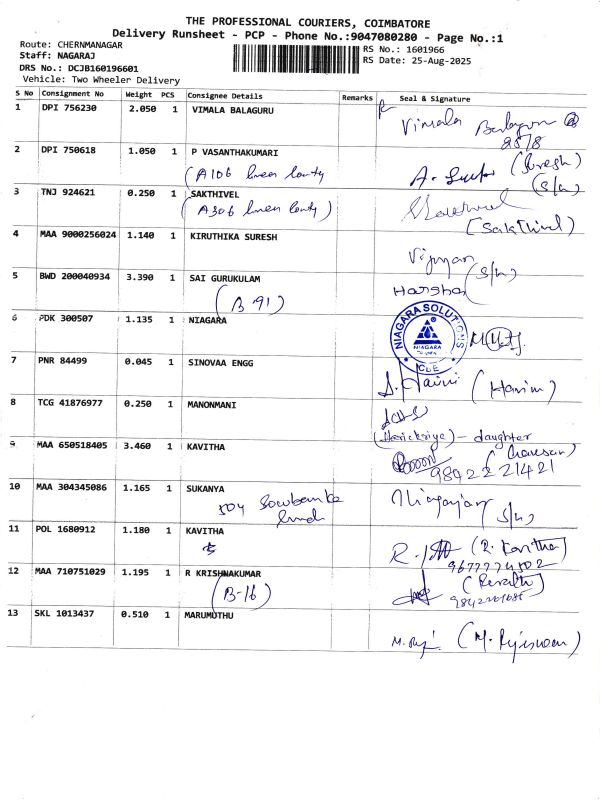 THE PROFESSIONAL COURIERS, COIMBATORE
Delivery Runsheet - PCP - Phone No.:9047080280 - Page No.:1
Route: CHERNMANAGAR
Staff: NAGARAJ
DRS No.: DCJB160196601
Vehicle: Two Wheeler Delivery
RS No.: 1601966
RS Date: 25-Aug-2025
S No Consignment No Weight PCS Consignee Details Remarks Seal & Signature
1 DPI 756230 2.050 1 VIMALA BALAGURU Vimala
25/8
2 DPI 750618 1.050 1 P VASANTHAKUMARI (Suresh)
(A106 S/n)
3 TNJ 924621 0.250 1 SAKTHIVEL
(A306 (Sakthivel)
4 MAA 9000256024 1.140 1 KIRUTHIKA SURESH
S/n)
5 BWD 200040934 3.390 1 SAI GURUKULAM Harsha
(B-91)
6 PDK 300507 1.135 1 NIAGARA NIAGARA SOLUTIONS
NIAGARA
CBE
7 PNR 84499 0.045 1 SINOVAA ENGG
8 TCG 41876977 0.250 1 MANONMANI
- daughter
9 MAA 650518405 3.460 1 KAVITHA
9842221421
10 MAA 304345086 1.165 1 SUKANYA
504 S/n
11 POL 1680912 1.180 1 KAVITHA (R. Kavitha)
9677774502
12 MAA 710751029 1.195 1 R KRISHNAKUMAR (Revathi)
(B-16)
13 SKL 1013437 0.510 1 MARUMUTHU